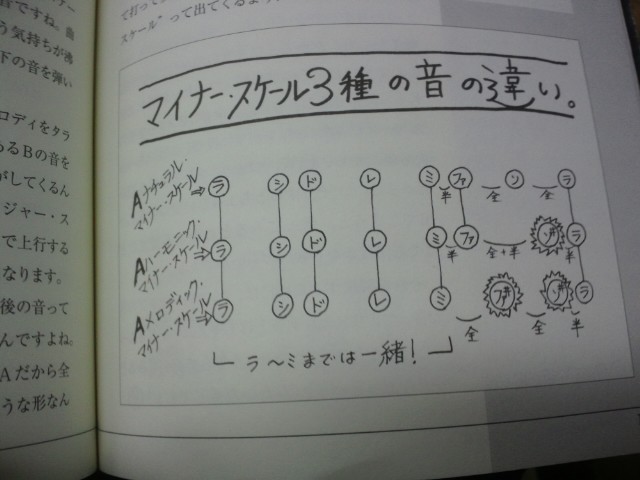 音ですね。曲
う気持ちが沸
下の音を弾い
ロディをタラ
わるBの音を
がしてくるん
ジャー・ス
で上行する
なります。
後の音って
んですよね。
Aだから全
うな形なん
スケール"って出てくるよう
マイナー・スケール3種の音の違い。
Aナチュラル・
マイナー・スケール
⇒ラ シ ド レ ミ ファ ソ ラ
半 全 全
Aハーモニック・
マイナー・スケール
⇒ラ シ ド レ ミ ファ ソ# ラ
半 全+半 半
Aメロディック・
マイナー・スケール
⇒ラ シ ド レ ミ ファ# ソ# ラ
全 全 全 半
ラ〜ミまでは一緒!